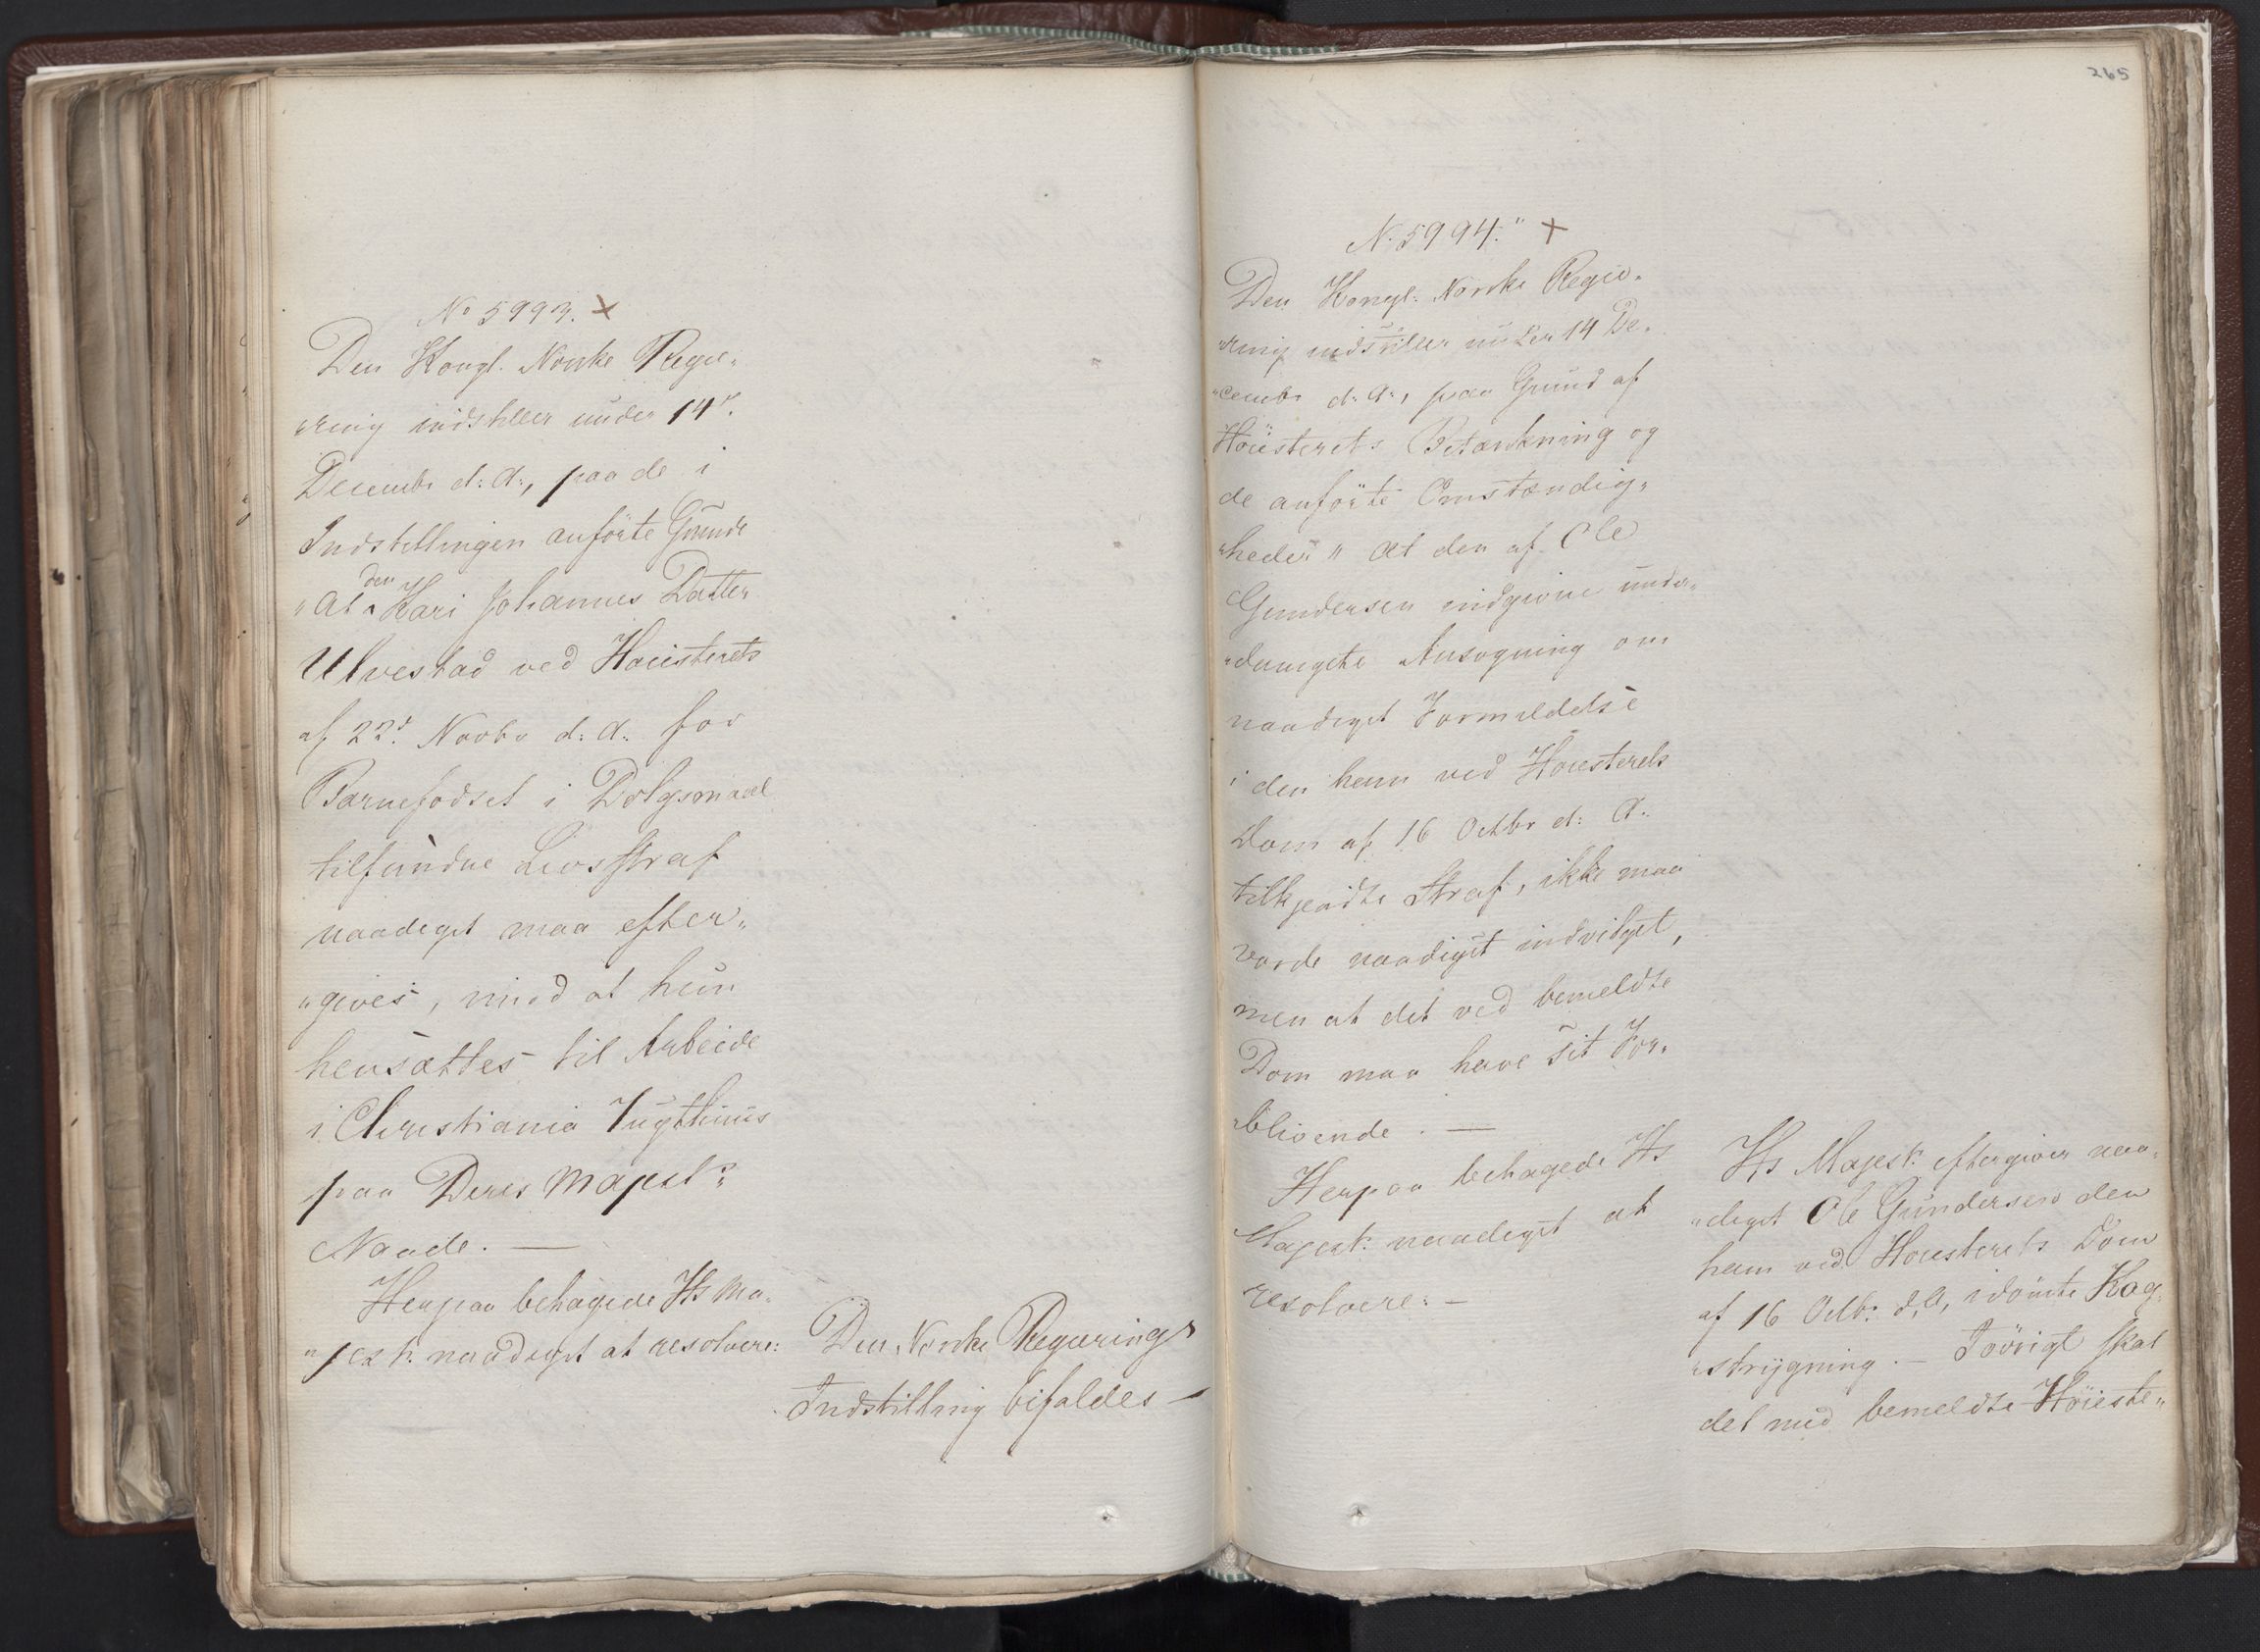 No 5993. x
Den Kongl. Norske Rege„
„ring indstiller under 14de.
Decembr d: A:, paa de i
Indstillingen anförte Grunde
den
„At ^ Kari Johannes Datter
Ulvestad ved Höiesterets
af 22d. Novbr d: A: for
Barnefödsel i Dölgsmaal
tilfundne Livsstraf
naadigst maa efter„
„gives, mod at hun
hensættes til Arbeide
i Christiania Tugthuus
paa Deres Majest:s
Naade. —
Herpaa behagede Hs Ma„
„jest: naadigst at resolvere:
Den Norske Regjerings
Indstilling bifaldes —
265
N. 5994." x
Den Kongl: Norske Rege„
„ring indstiller under 14 De„
„cembr d: A:, paa Grund af
Höiesterets Betænkning og
de anförte Omstændig„
„heder " At den af Ole
Gundersen indgivne under„
„danigste Ansögning om
naadigst Formildelse
i den ham ved Höiesterets
Dom af 16 Octbr d: A:
tilkjendte Straf, ikke maa
vorde naadigst indvilget,
men at det ved bemeldte
Dom maa have sit For„
„blivende. —
Herpaa behagede Hs
Majest: naadigst at
resolvere: —
Hs Majest: eftergiver naa„
„digst Ole Gundersen den
ham ved Höiesterets Dom
af 16 Octb: d. A, idömte Kag„
„strygning. — Iövrigt skal
det med bemeldte Höieste„